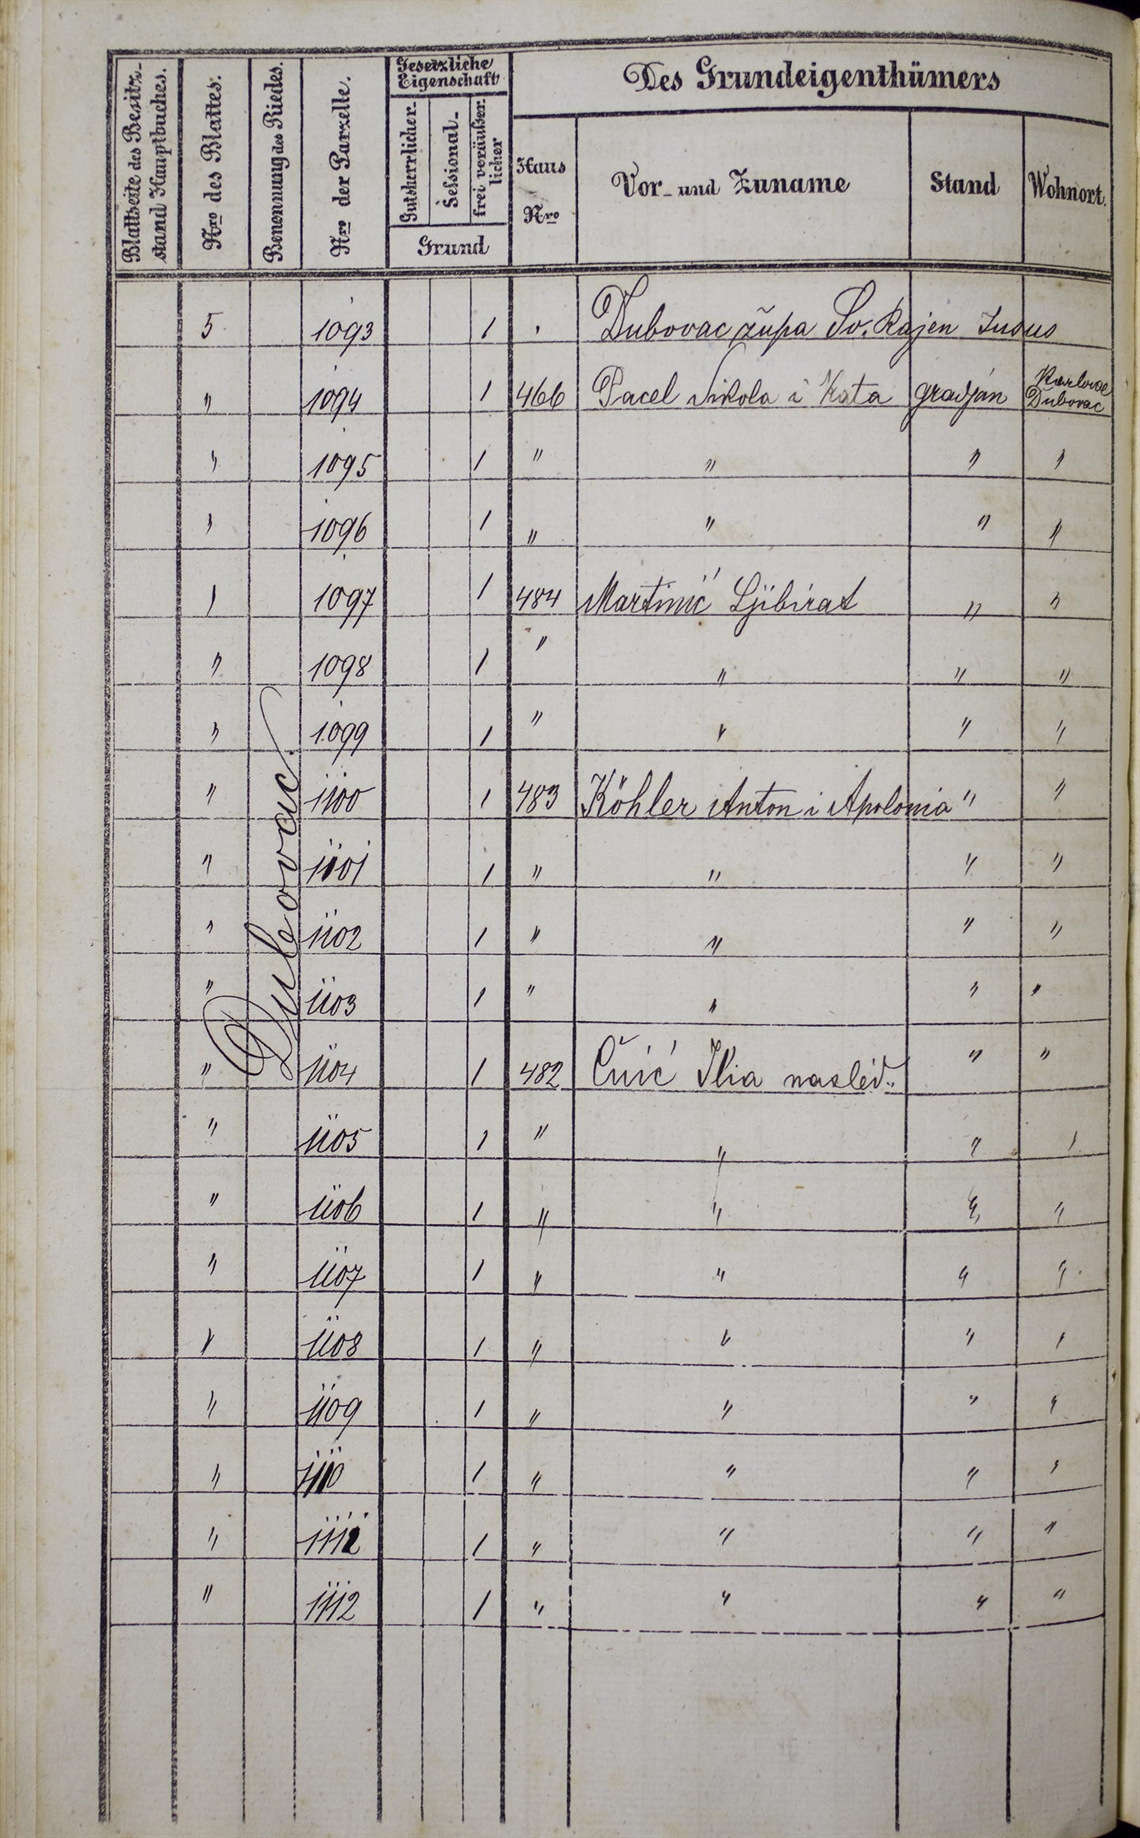 Blattseite des Besitz-
stand Hauptbuches.
Nro des Blattes.
Benennung des Riedes.
Nro der Parzelle.
Gesetzliche
Eigenschaft
Gutsherrlicher
Sessional-
frei veräußer-
licher
Grund
Des Grundeigenthümers
Haus
Nro
Vor- und Zuname
Stand
Wohnort.
Dubovac
5 1093 1 . Dubovac župa Sv.
" 1094 1 466 Pacel Nikola i Kata gradján Karlovac Dubovac
" 1095 1 " " " "
" 1096 1 " " " "
" 1097 1 484 Martinić " "
" 1098 1 " " " "
" 1099 1 " " " "
" 1100 1 483 Köhler Anton i Apolonia " "
" 1101 1 " " " "
" 1102 1 " " " "
" 1103 1 " " " "
" 1104 1 482 Čuić Ilia naslěd. " "
" 1105 1 " " " "
" 1106 1 " " " "
" 1107 1 " " " "
" 1108 1 " " " "
" 1109 1 " " " "
" 1110 1 " " " "
" 1 " " " "
" 1112 1 " " " "